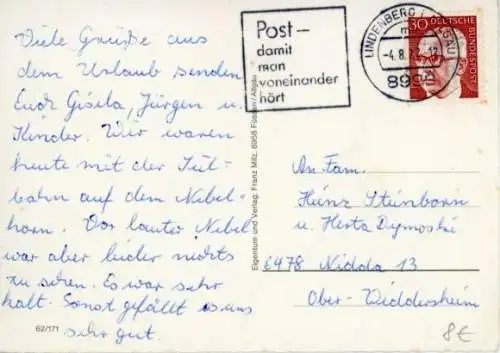 Viele Grüße aus
dem Urlaub senden
Euch Gisela, Jürgen u.
Kinder. Wir waren
heute mit der Seil-
bahn auf dem Nebel-
horn. Vor lauter Nebel
war aber leider nichts
zu sehen. Es war sehr
kalt. Sonst gefällt es uns
sehr gut.
62/171
Eigentum und Verlag: Franz Milz, 8958 Füssen/Allgäu
Post-
damit
man
voneinander
hört
LINDENBERG i. ALLGÄU
-4.8.72-12
8998
30 DEUTSCHE
BUNDESPOST
An Fam.
Heinz Steinborn
u. Herta Dymoski
6478 Nidda 13
Ober-Widdersheim
8€